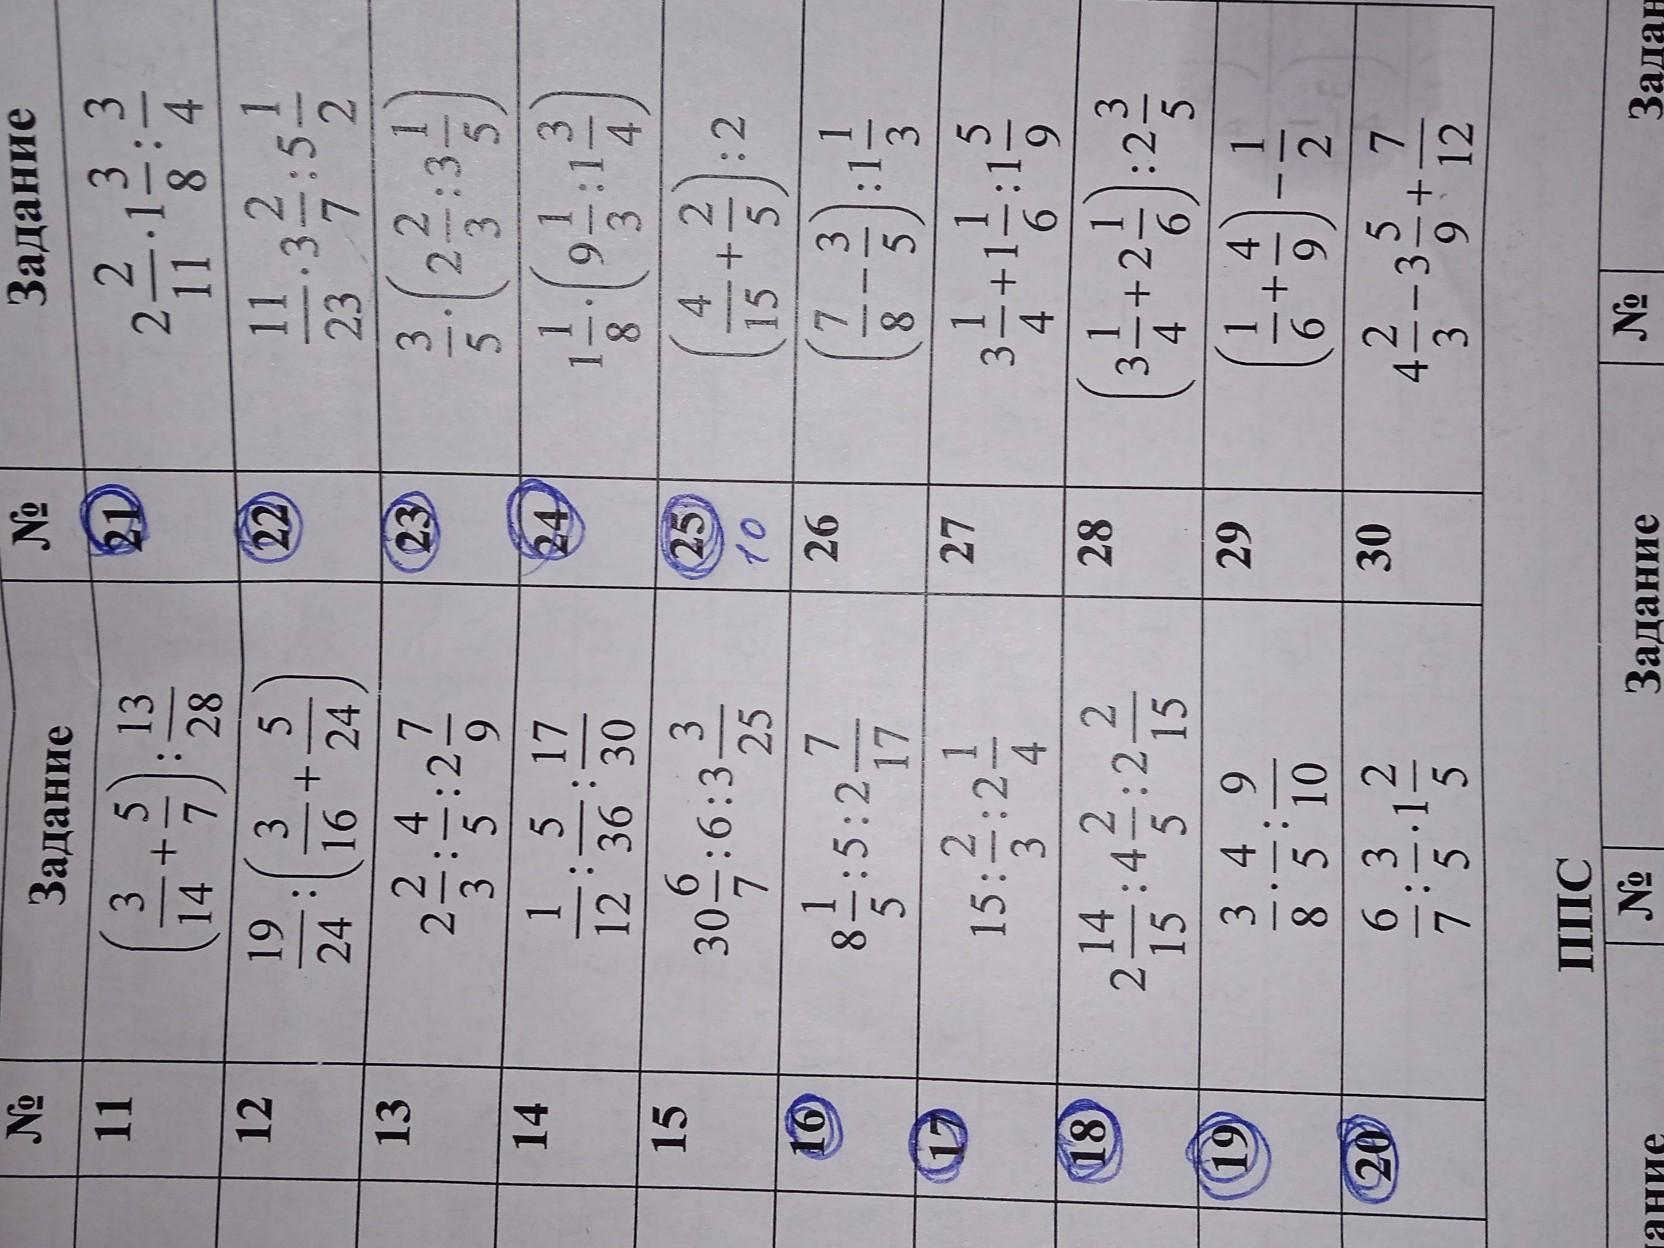 № Задание № Задание
11 (3/14 + 5/7) : 13/28 21 2 2/11 · 1 3/8 : 3/4
12 19/24 : (3/16 + 5/24) 22 11/23 · 3 2/7 : 5 1/2
13 2 2/3 : 4/5 : 2 7/9 23 3/5 · (2 2/3 : 3 1/5)
14 1/12 : 5/36 : 17/30 24 1 1/8 · (9 1/3 : 1 3/4)
15 30 6/7 : 6 : 3 3/25 25 (4/15 + 2/5) : 2
10
16 8 1/5 : 5 : 2 7/17 26 (7/8 − 3/5) : 1 1/3
17 15 : 2/3 : 2 1/4 27 3 1/4 + 1 1/6 : 1 5/9
18 2 14/15 : 4 2/5 : 2 2/15 28 (3 1/4 + 2 1/6) : 2 3/5
19 3/8 · 4/5 : 9/10 29 (1/6 + 4/9) − 1/2
20 6/7 : 3/5 · 1 2/5 30 4 2/3 − 3 5/9 + 7/12
ППС
№ Задание №